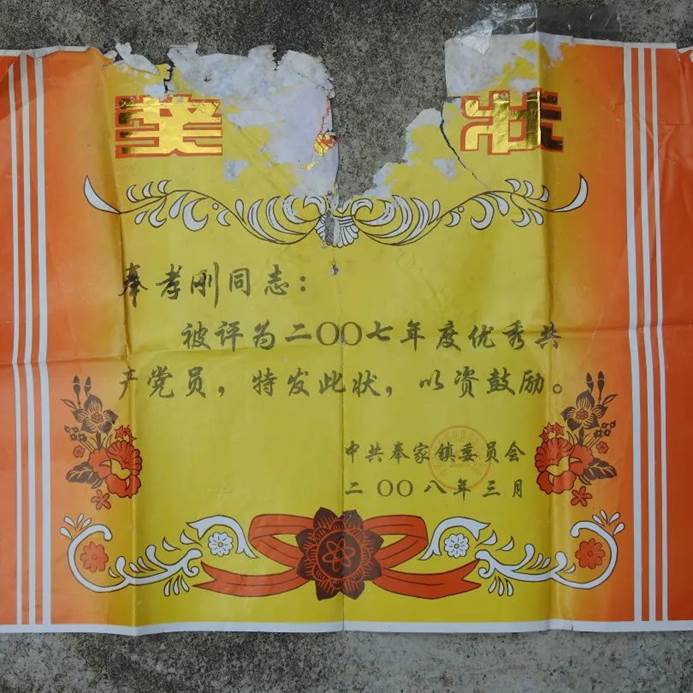 奖 状
奉孝刚同志：
被评为二〇〇七年度优秀共
产党员，特发此状，以资鼓励。
中共奉家镇委员会
二〇〇八年三月